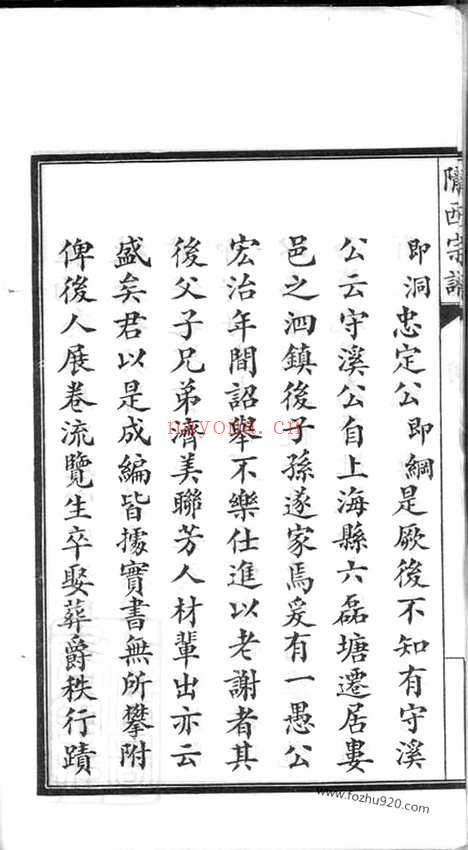 隴西宗譜
即洞忠定公即綱是厥後不知有守溪
公云守溪公自上海縣六磊塘遷居婁
邑之泗鎮後子孫遂家焉爰有一愚公
宏治年間詔舉不樂仕進以老謝者其
後父子兄弟濟美聯芳人材輩出亦云
盛矣君以是成編皆據實書無所攀附
俾後人展卷流覽生卒娶葬爵秩行蹟
nayona.cn
www.fozhu920.com